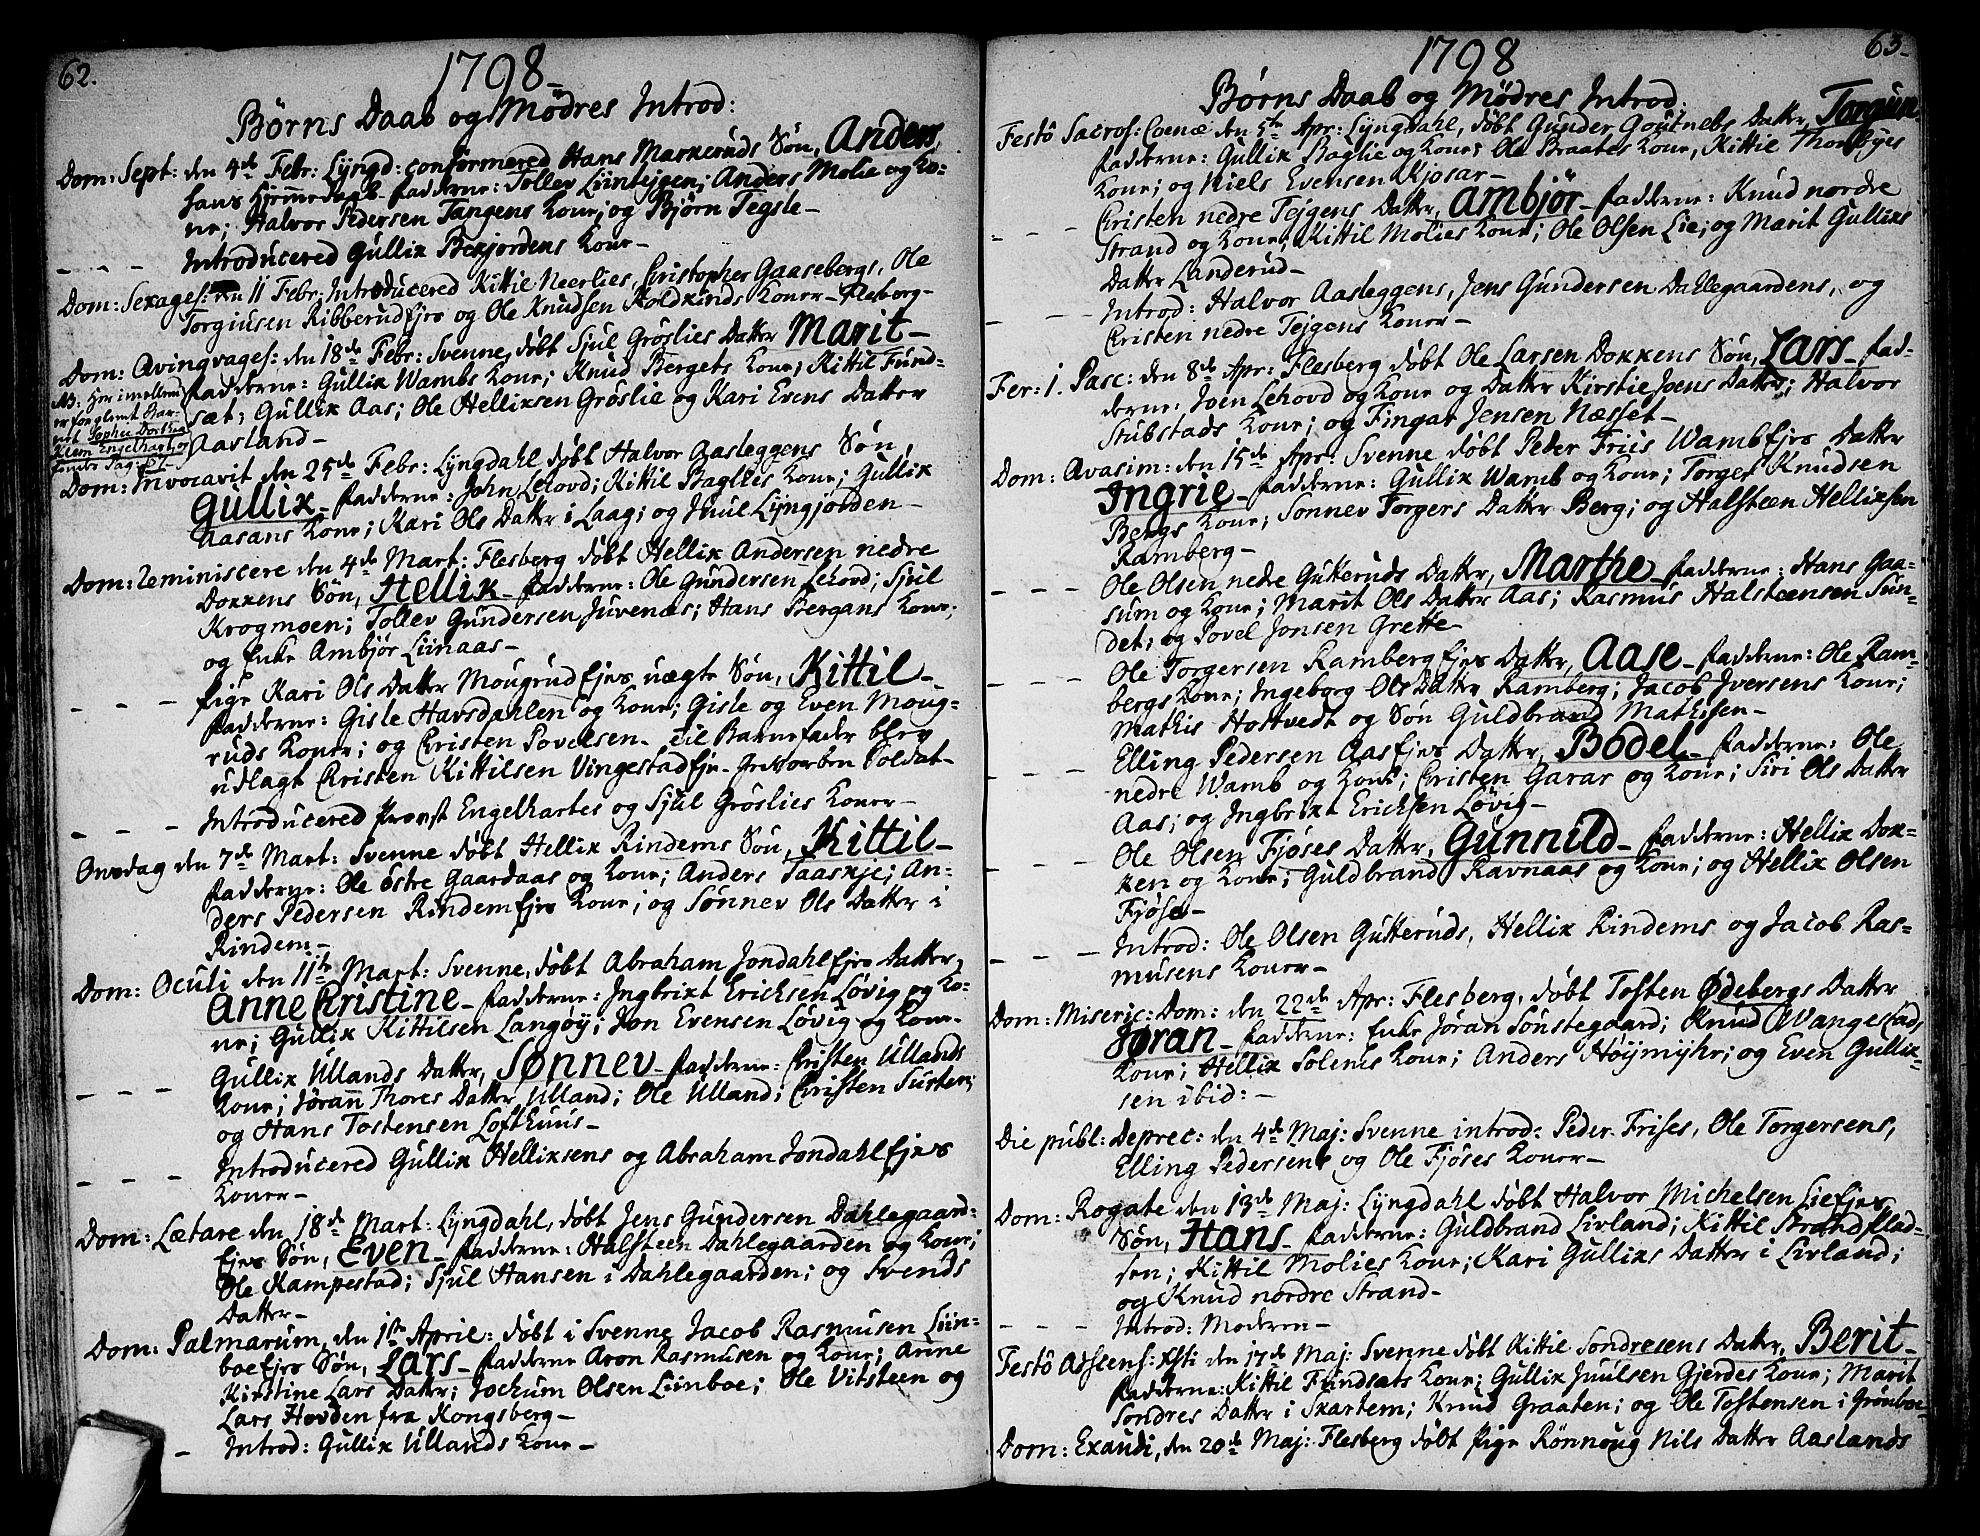 62.
1798-
Børns Daab og Mødres Introd:
Dom: Sept: den 4de Febr: Lyngd: confirmered Hans Markeruds Søn, Anders,
hans Hjemmedaab. Fadderne: Tollev Liintejgen; Anders Molie og Ko-
ne; Halvor Pedersen Tangens Kone; og Bjørn Tegsle-
- - - Introducered Gullix Bekjordens Kone-
Dom: Sexages: den 11 Febr: Introducered Kittil Neerlies, Christopher Gaasebergs, Ole
Torgiusen Ribberudejes og Ole Knudsen Koldkinds Koner- Flesberg-
Dom: Qvinqvages: den 18de Febr: Svenne, døbt Sjul Grøslies Datter Marit-
Fadderne: Gullix Wambs Kone; Knud Bergets Kone; Kittil Fund-
sæt; Gullix Aas; Ole Hellixsen Grøslie og Kari Evens Datter
Aasland-
NB: Her imellem
er forglemt Bar-
net Sophie Dorthea
Klem Engelhart
Dom: Invocavit den 25de Febr: Lyngdahl døbt Halvor Aasleggens Søn,
Gullix- Fadderne: John Lehovd; Kittil Baglies Kone; Gullix
Aasans Kone; Kari Ols Datter i Laag; og Juul Lyngjorden-
Dom: Reminiscere den 4de Mart: Flesberg døbt Hellix Andersen nedre
Dokkens Søn, Hellik- Fadderne: Ole Gundersen Lehovd; Sjul
Krogmoen; Tollev Gundersen Juvenæs; Hans Bergans Kone;
og Enke Ambjør Liinaas-
- - - Pige Kari Ols Datter Mougrudejes uægte Søn, Kittil-
Fadderne: Gisle Havsdahlen og Kone; Gisle og Even Moug-
ruds Koner; og Christen Povelsen- Til Barnefader blev
udlagt Christen Kittilsen Vingestadeje- Gevorben Soldat-
- - - Introducered Provst Engelhartes og Sjul Grøslies Koner-
Onsdag den 7de Mart: Svenne døbt Hellix Rindems Søn, Kittil-
Fadderne: Ole østre Gaardaas og Kone; Anders Taaskje; An-
ders Pedersen Rindemejes Kone; og Sønnev Ols Datter i
Rindem-
Dom: Oculi den 11te Mart: Svenne, døbt Abraham Jondahlejes Datter,
Anne Cristine- Fadderne: Ingbrixt Erichsen Løvig og Ko-
ne; Gullix Kittilsen Langøy; Jon Evensen Løvig og Kone-
- - - Gullix Ullands Datter, Sønnev- Fadderne: Cristen Ullands
Kone; Jørann Thores Datter Ulland; Ole Ulland; Christen Suster;
og Hans Tostensen Lofthuus-
- - - Introducered Gullix Hellixsens og Abraham Jondahlejes
Koner-
Dom: Lætare den 18de Mart: Lyngdahl, døbt Jens Gundersen Dahlegaard-
Ejes Søn, Even- Fadderne: Halsteen Dahlegaarden og Kone;
Ole Kampestad; Sjul Hansen i Dahlegaarden; og Svends
Datter-
Dom: Palmarum, den 1ste April: døbt i Svenne Jacob Rasmusen Liin-
boeejes Søn, Lars- Fadderne Aron Rasmusen og Kone; Anne
Kirstine Lars Datter; Jochum Olsen Liinboe; Ole Vitsteen og
Lars Hovden fra Kongsberg-
- Introd: Gullix Ullands Kone-
63-
1798
Børns Daab og Mødres Introd:
Festô Sacros: Coenæ den 5te Apr: Lyngdahl, døbt Gunder Goutnebs Datter, Torgun.
Fadderne: Gullix Baglie og Kone; Ole Braates Kone, Kittil Thorsbyes
Kone; og Niels Evensen Kjosar-
- - - Cristen nedre Tejgens Datter, Ambjør- Fadderne: Knud nordre
Strand og Kone; Kittil Molies Kone; Ole Olsen Lie; og Marit Gullixs
Datter Landerud-
- - - Introd: Halvor Aasleggens, Jens Gundersen Dahlegaardens, og
Cristen nedre Tejgens Koner-
Fer: 1. Pasc: den 8de Apr: Flesberg døbt Ole Larsen Dokkens Søn, Lars- Fad-
derne: Joen Lehovd og Kone og Datter Kirstie Joens Datter; Halvor
Stubstads Kone; og Fingar Jensen Næsset-
Dom: Qvasim: den 15de Apr: Svenne døbt Peder Friis Wambejes Datter
Ingrie- Fadderne: Gullix Wamb og Kone; Torger Knudsen
Bergs Kone; Sønnev Torgers Datter Berg; og Halsteen Hellixsen
Ramberg-
- - - Ole Olsen nedre Gutteruds Datter, Marthe- Fadderne: Hans Gaa-
sum og Kone; Marit Ols Datter Aas; Rasmus Halsteensen Sun-
det; og Povel Jonsen Grette-
- - - Ole Torgersen Rambergejes Datter, Aase- Fadderne: Ole Ram-
bergs Kone; Ingeborg Ols Datter Ramberg; Jacob Iversens Kone;
Mathis Hostvedt og Søn Guldbrand Mathisen-
- - - Elling Pedersen Aasejes Datter, Bodel- Fadderne: Ole
nedre Wamb og Kone; Cristen Garar og Kone; Siri Ols Datter
Aas; og Ingbrixt Erichsen Løvig-
- - - Ole Olsen Fjøses Datter, Gunnild- Fadderne: Hellix Dok-
ken og Kone; Guldbrand Ravnaas og Kone; og Hellix Olsen
Fjøse-
- - - Introd: Ole Olsen Gutteruds, Hellix Rindems og Jacob Ras-
musens Koner-
Dom: Miseric: Dom: den 22de Apr: Flesberg, døbt Tosten Ødebergs Datter
Jøran- Fadderne: Enke Jøran Sønstegaard; Knud Wangestads
Kone; Hellix Solems Kone; Anders Høymyhr; og Even Gullix-
sen ibid:-
Die publ: Deprec: den 4de Maj: Svenne introd: Peder Frises, Ole Torgersens,
Elling Pedersens og Ole Fjøses Koner-
Dom: Rogate den 13de Maj: Lyngdahl døbt Halvor Michelsen Lieejes
Søn, Hans- Fadderne: Guldbrand Livland; Kittil Strand Klad-
sen; Kittil Molies Kone; Kari Gullixs Datter i Livland;
og Knud nordre Strand-
- - - Introd: Moderen-
Festô Adscens: Xsti den 17de Maj: Svenne døbt Kittil Sondresens Datter, Berit-
Fadderne: Kittil Fundsæts Kone; Gullix Juulsen Gjerdes Kone; Marit
Sondres Datter i Skartem; Knud Graaten; og Ole Tostensen i Grønboe-
Dom: Exaudi, den 20de Maj: Flesberg døbt Pige Rønnoug Nils Datter Aaslands